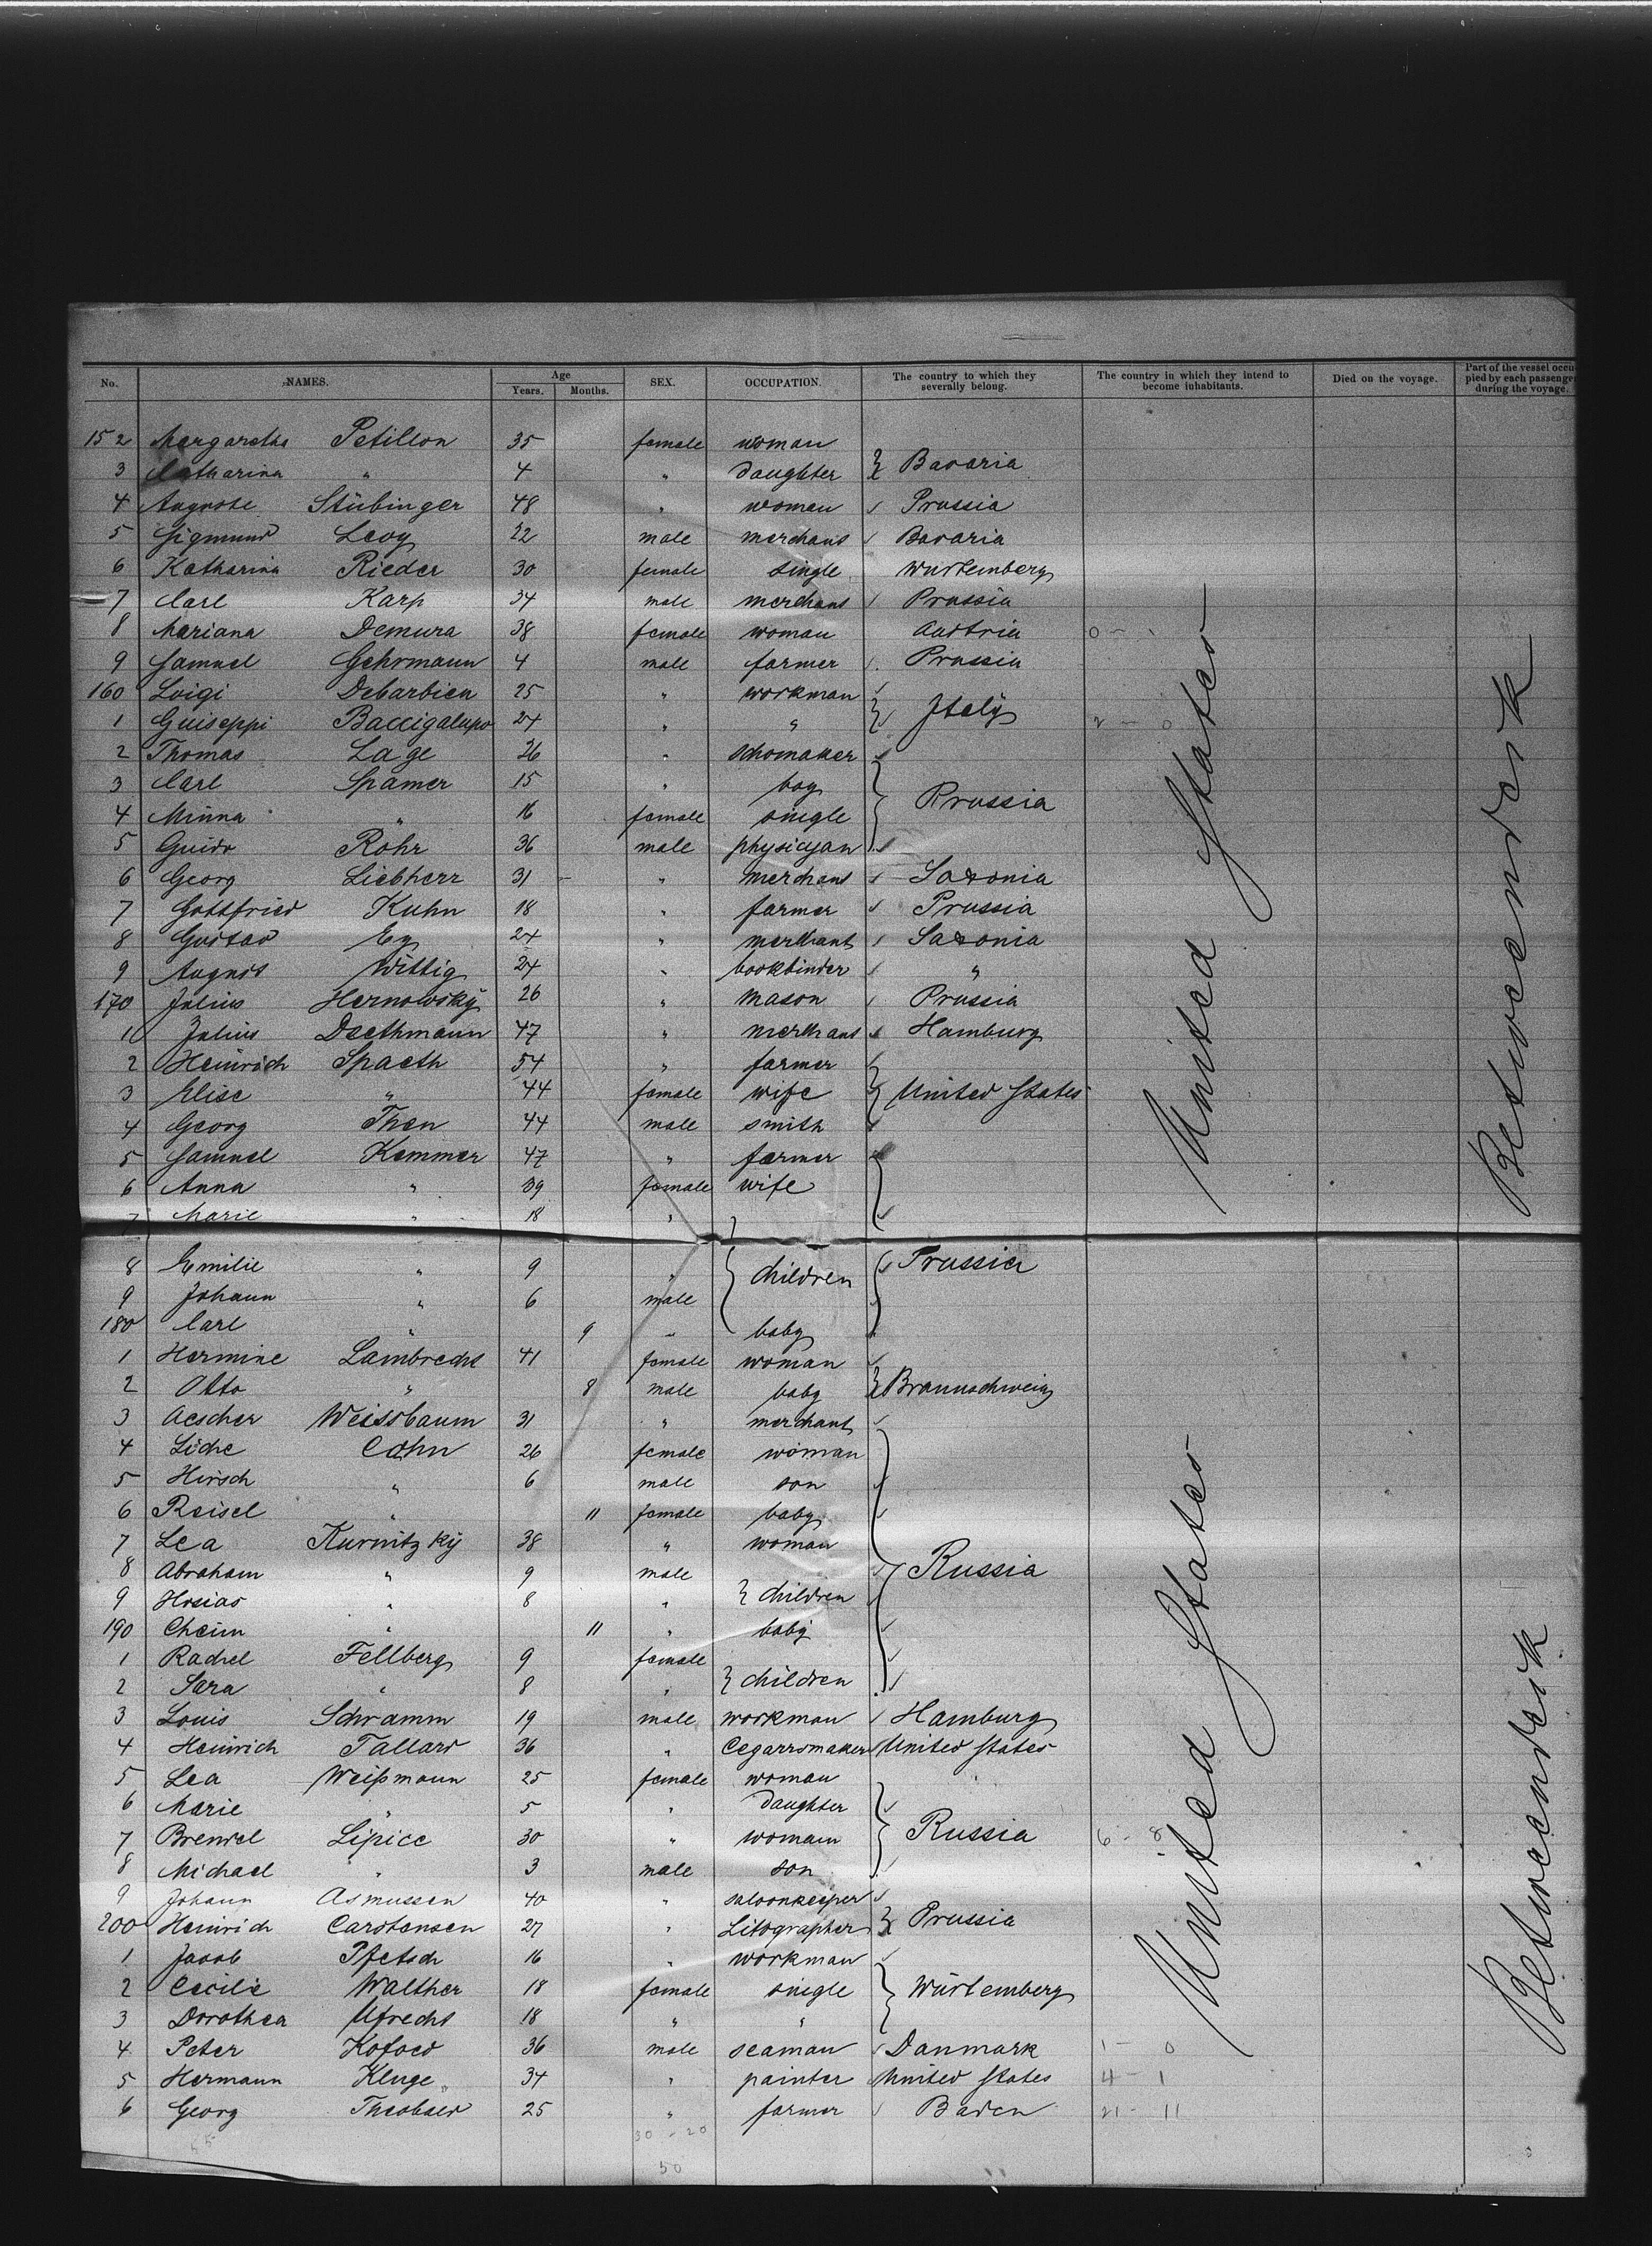 No. NAMES. Age Years. Months. SEX. OCCUPATION. The country to which they severally belong. The country in which they intend to become inhabitants. Died on the voyage. Part of the vessel occupied by each passenger during the voyage.
152 Margaretha Petillon 35 female woman
3 Catharina " 4 " daughter } Bavaria
4 Auguste Stübinger 48 " woman Prussia
5 Sigmund Levy 22 male merchant Bavaria
6 Katharina Rieder 30 female single Wurtemberg
7 Carl Karp 34 male merchant Prussia
8 Mariana Demura 38 female woman Austria
9 Samuel Gehrmann 4 male farmer Prussia
160 Luigi Debarbieu 25 " workman
1 Guiseppi Baccigalupo 24 " " } Italy
2 Thomas Lage 26 " schomaker
3 Carl Spamer 15 " boy
4 Minna " 16 female single } Prussia
5 Guido Rohr 36 male physicyan
6 Georg Liebherr 31 " merchant Saxonia
7 Gottfried Kuhn 18 " farmer Prussia
8 Gustav Ey 24 " merchant Saxonia
9 August Wittig 24 " bookbinder "
170 Julius Hernowsky 26 " mason Prussia
1 Julius Doethmann 47 " merchant Hamburg
2 Heinrich Spaeth 54 " farmer
3 Elise " 44 female wife } United States
4 Georg Then 44 male smith
5 Samuel Kemmer 47 " farmer
6 Anna " 39 female wife
7 Marie " 18 "
8 Emilie " 9 " } children } Prussia
9 Johann " 6 male
180 Carl " 9 " baby
1 Hermine Lambrecht 41 female woman
2 Otto " 8 male baby } Braunschweig
3 Aescher Weissbaum 31 " merchant
4 Liche Cohn 26 female woman
5 Hirsch " 6 male son
6 Reisel " 11 female baby
7 Lea Kurnitzky 38 " woman
8 Abraham " 9 male } Russia
9 Hosias " 8 " } children
190 Cheim " 11 " baby
1 Rachel Fellberg 9 female
2 Sara " 8 " } children
3 Louis Schramm 19 male workman Hamburg
4 Heinrich Tallard 36 " Cegarrsmaker United States
5 Lea Weißmann 25 female woman
6 Marie " 5 " daughter
7 Brendel Lipice 30 " womam } Russia 6 - 8
8 Michael " 3 male son
9 Johann Asmussen 40 " saloonkeeper
200 Heinrich Carstensen 27 " Litographer } Prussia
1 Jacob Pfetsch 16 " workman
2 Cecilie Walther 18 female single } Würtemberg
3 Dorothea Ufrecht 18 " "
4 Peter Kofoed 36 male seaman Danmark 1 - 0
5 Hermann Kluge 34 " painter United States 4 - 1
6 Georg Theobald 25 " farmer Baden 21 - 11
30 - 20
50
United States
Betweendeik
United States
Betweendeik